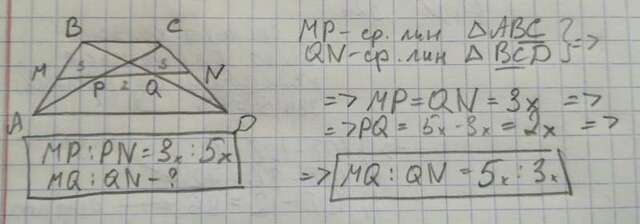 B C
M 3 3 N
P 2 Q
A D
MP:PN=3x:5x
MQ:QN-?
MP-ср. лин △ABC
QN-ср. лин △BCD } =>
=> MP=QN=3x =>
=> PQ= 5x-3x=2x =>
=> MQ:QN=5x:3x